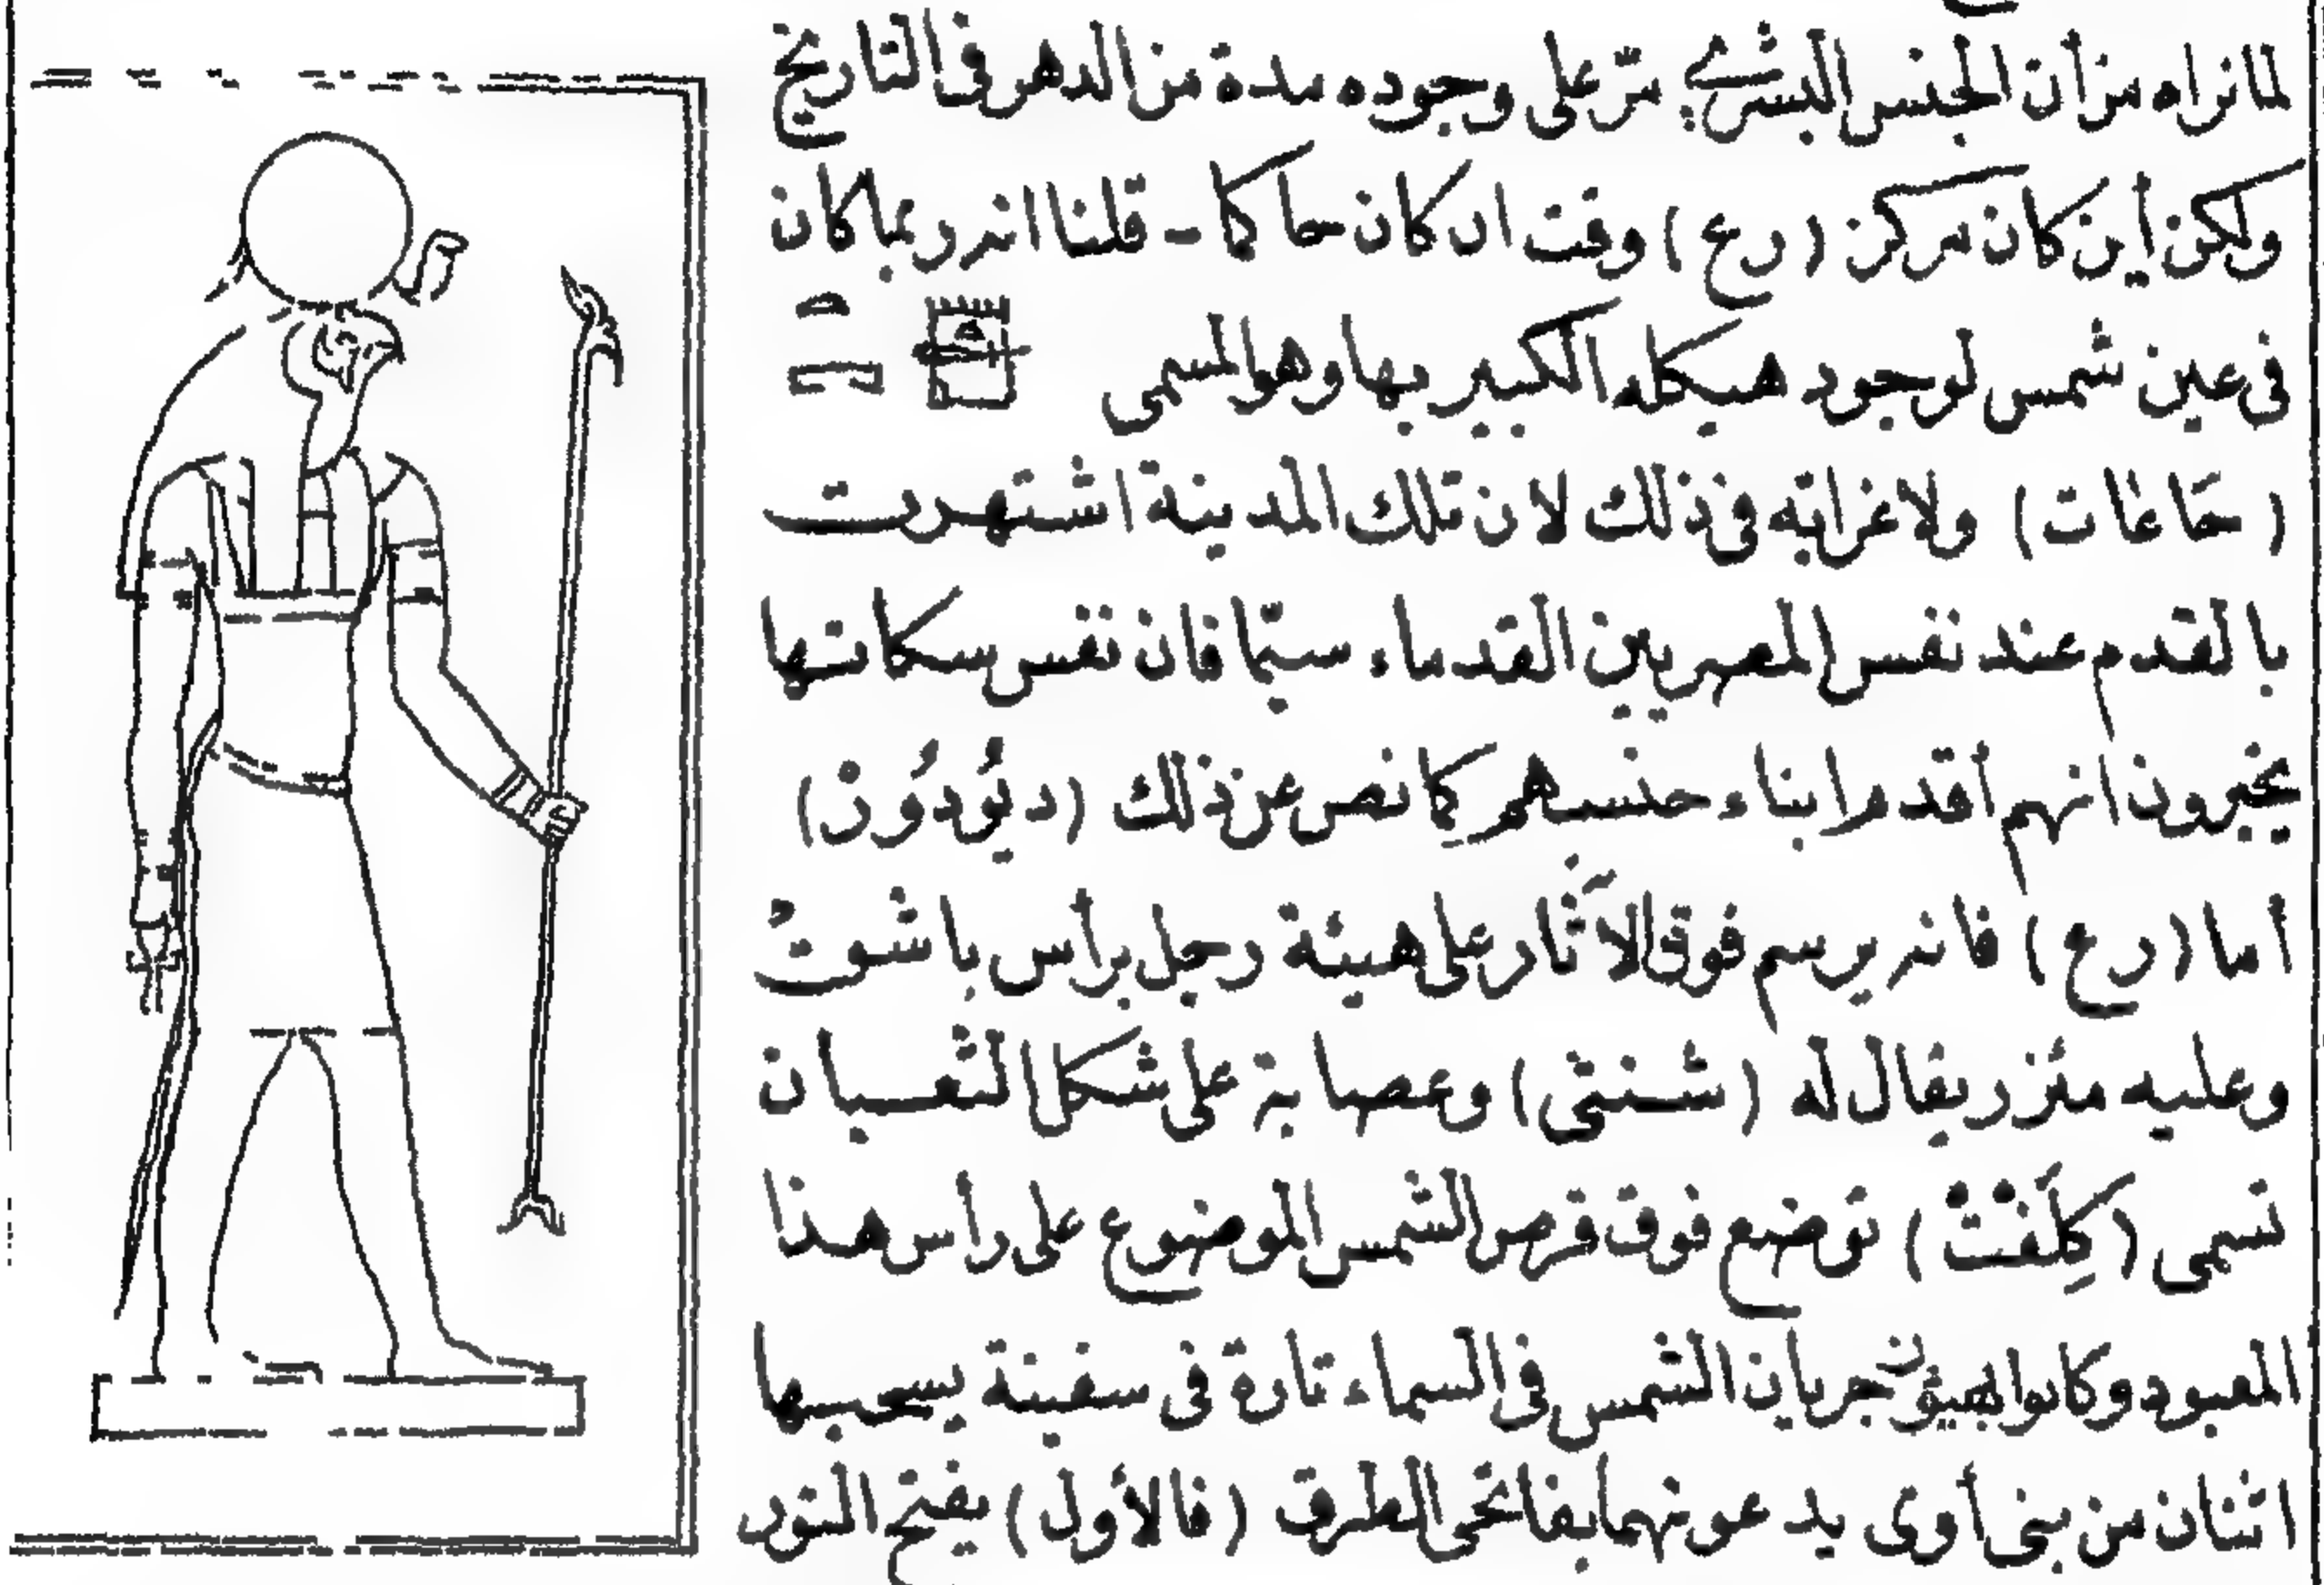 لما نراه من أن الجنس البشرى مرّ على وجوده مدة من الدهر فى التاريخ
ولكن أين كان مركز (رع) وقت ان كان حاكما - قلنا انه ربما كان
فى عين شمس لوجود هيكله الكبير بها وهو المسمى
(حَاعَات) ولا غرابة فى ذلك لان تلك المدينة اشتهرت
بالقدم عند نفس المصريين القدماء سيّما فان نفس سكانها
يخبرون انهم أقدم ابناء جنسهم كما نص عن ذلك (ديُودُورْ)
أما (رع) فانه يرسم فوق الآثار على هيئة رجل برأس باشوتُ
وعليه مئزر يقال له (شنتى) وعصابة على شكل الثعبان
تسمى (كِلَفْتْ) توضع فوق قرص الشمس الموضوع على رأس هذا
المعبود وكانوا جريان الشمس فى السماء تارة فى سفينة يسحبها
اثنان من بنى أوى يدعونهما بفاتحى الطرق (فالأول) يفتح النور